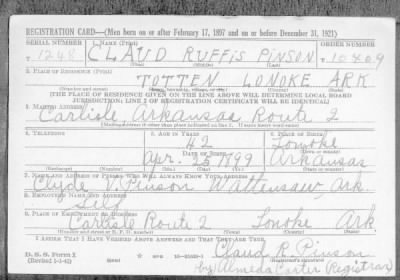 REGISTRATION CARD—(Men born on or after February 17, 1897 and on or before December 31, 1921)
SERIAL NUMBER 1. NAME (Print) ORDER NUMBER
1248 CLAUD RUFFIS PINSON 10409
(First) (Middle) (Last)
2. PLACE OF RESIDENCE (Print)
TOTTEN LONOKE ARK
(Number and street) (Town, township, village, or city) (County) (State)
[THE PLACE OF RESIDENCE GIVEN ON THE LINE ABOVE WILL DETERMINE LOCAL BOARD
JURISDICTION; LINE 2 OF REGISTRATION CERTIFICATE WILL BE IDENTICAL]
3. MAILING ADDRESS
Carlisle, Arkansas Route 2
[Mailing address if other than place indicated on line 2. If same insert word same]
4. TELEPHONE 5. AGE IN YEARS 6. PLACE OF BIRTH
42 Lonoke
DATE OF BIRTH (Town or county)
Apr. 25 1899 Arkansas
(Exchange) (Number) (Mo.) (Day) (Yr.) (State or country)
7. NAME AND ADDRESS OF PERSON WHO WILL ALWAYS KNOW YOUR ADDRESS
Clyde V. Pinson Wattensaw, Ark.
8. EMPLOYER'S NAME AND ADDRESS
Self
9. PLACE OF EMPLOYMENT OR BUSINESS
Carlisle Route 2 Lonoke Ark
(Number and street or R. F. D. number) (Town) (County) (State)
I AFFIRM THAT I HAVE VERIFIED ABOVE ANSWERS AND THAT THEY ARE TRUE.
D. S. S. Form 1 Claud R. Pinson
(Revised 1-1-42) by Almeda Carter (Registrar)